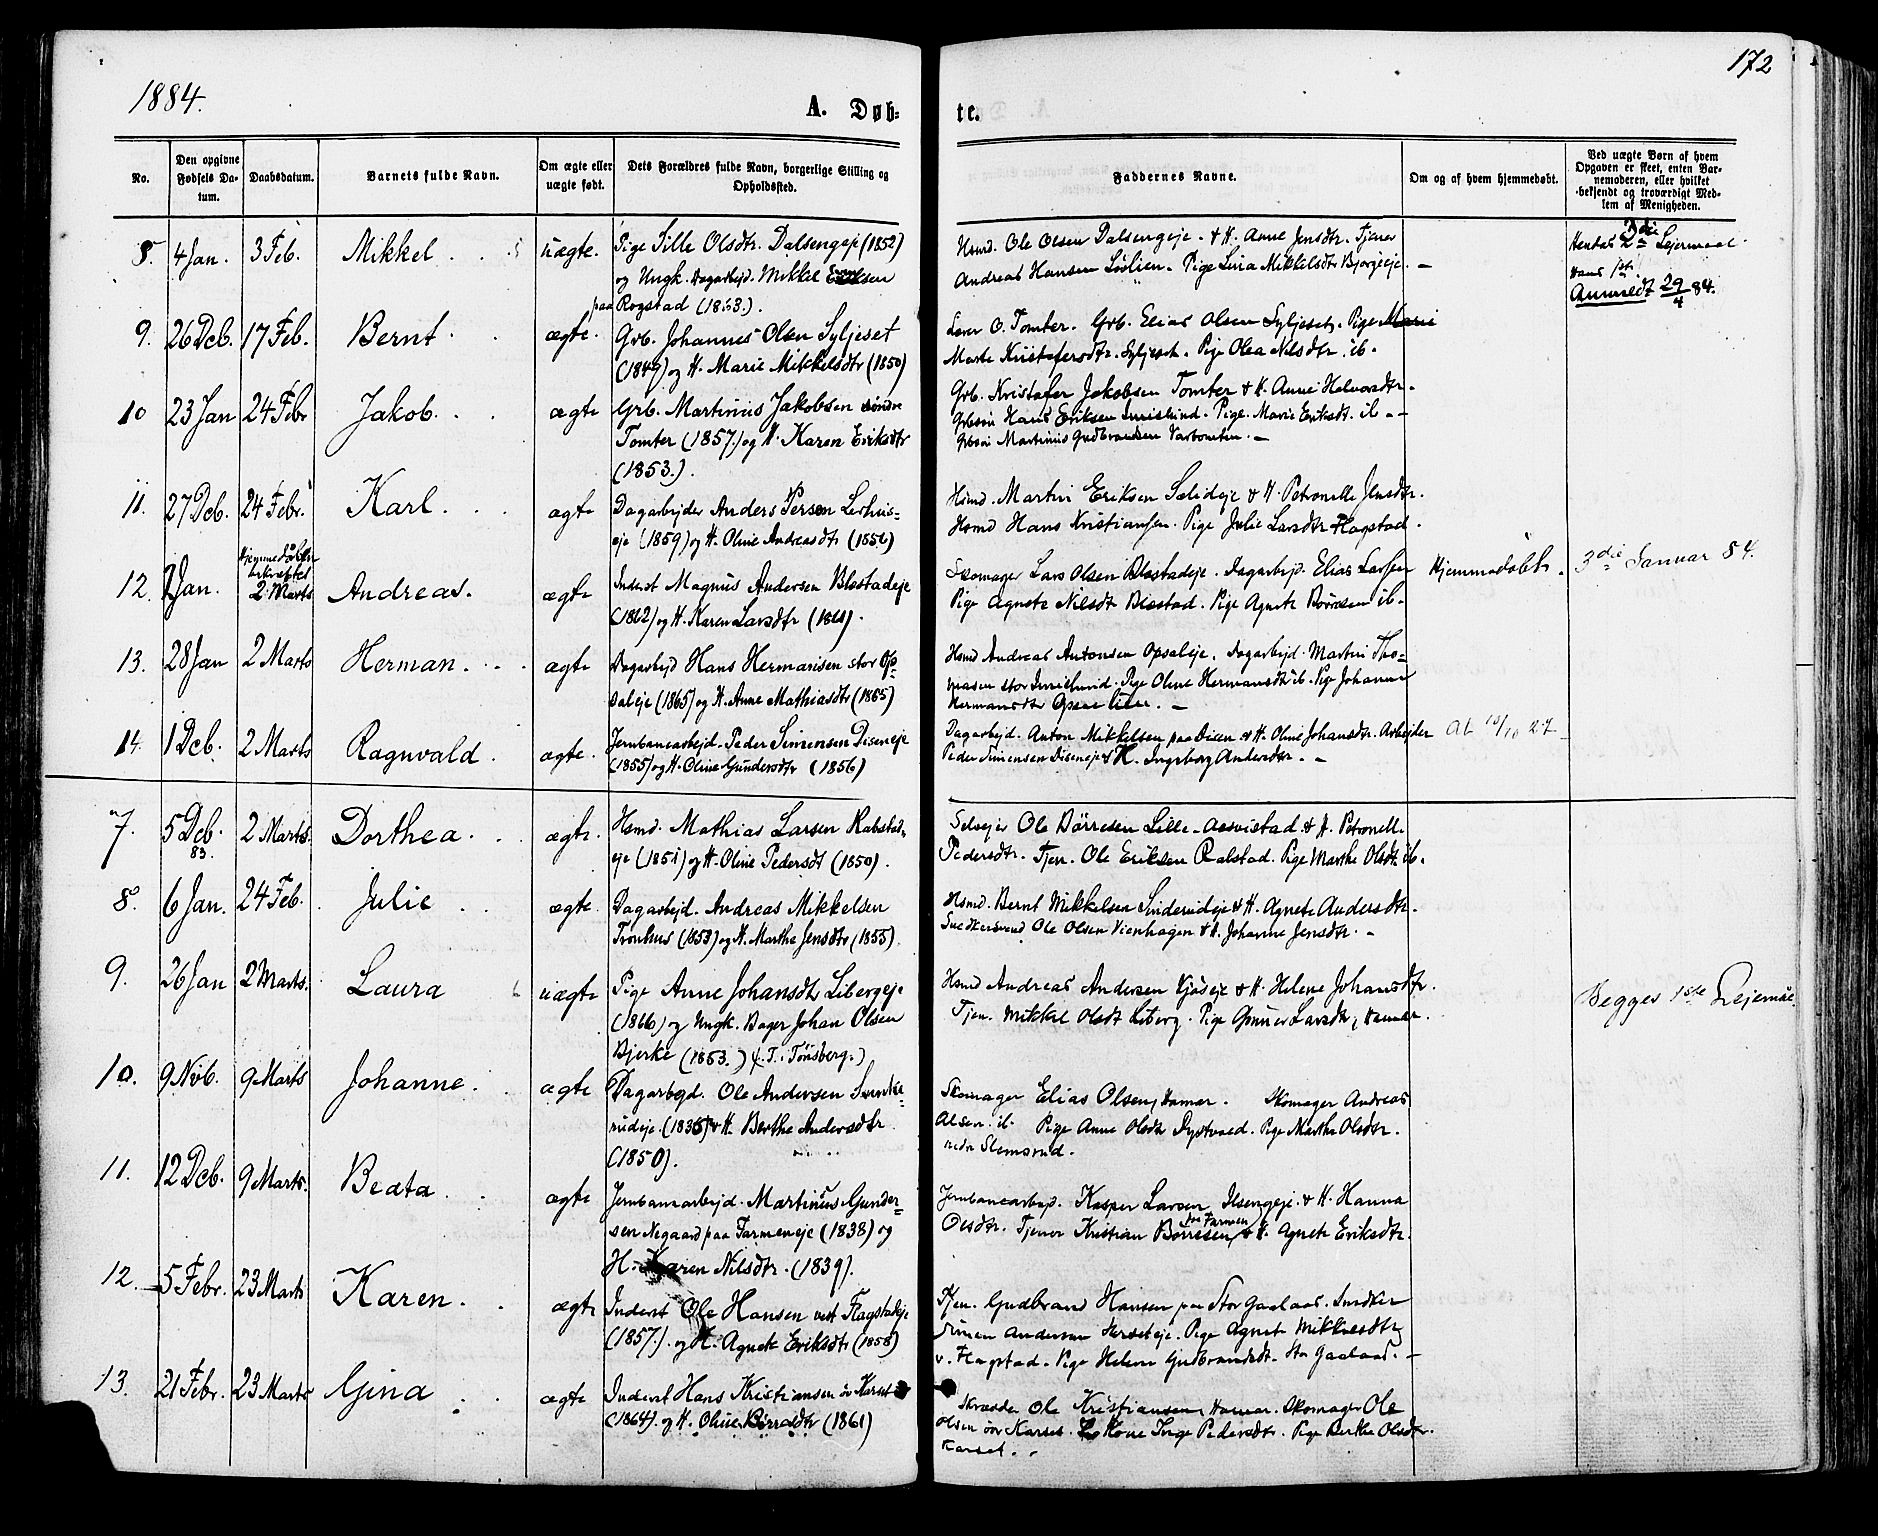 1884.
172
A. Døb=
te.
No.
Den opgivne Fødsels Da-tum.
Daabsdatum.
Barnets fulde Navn.
Om ægte eller uægte født.
Dets Forældres fulde Navn, borgerlige Stilling og Opholdssted.
Faddernes Navne.
Om og af hvem hjemmedøbt.
Ved uægte Børn af hvem Opgaven er skeet, enten Bar-nemoderen, eller hvilket bekjendt og troværdigt Med-lem af Menigheden.
8. 4 Jan. 3 Feb. Mikkel uægte. Pige Sille Olsdtr. Dalsengeje (1852)
og Ungk. Dagarbejd. Mikkel
paa Rogstad (1863.).
Hsmd. Ole Olsen Dalsengeje. & H. Anne Jensdtr. Tjener
Andreas Hansen Løslien. Pige Lina Mikkelsdtr Bjørgeeje. —
Hendes 2det Lejermaal.
Hans 1ste
Anmeldt 29/4 84.
9. 26 Dcb. 17 Feb. Bernt. ægte. Grb. Johannes Olsen Syljeset
(1849) og H. Marie Mikkelsdtr (1850)
Lærer O. Tomter. Grb. Elias Olsen Syljeset. Pige Marie
Marte Kristofersdtr. Syljeset. Pige Olea Nilsdtr. ib.
10 23 Jan 24 Febr Jakob. ægte Grb. Martinus Jakobsen søndre
Tomter (1857.) og H. Karen Eriksdtr
(1853.).
Grb. Kristofer Jakobsen Tomter & H. Anne Halvorsdtr.
Grbsøn Hans Eriksen Imislund. Pige. Marie Eriksdt. ib. —
Grbsøn Martinius Gudbrandsen —
11. 27 Dcb. 24 Febr. Karl. ægte Dagarbejder Anders Persen Lerhus=
eje (1859) og H. Oline Andreasdtr
Hsmd. Martin Eriksen Sælideje & H. Petronelle Jensdtr.
Hsmd Hans Kristiansen. Pige Julie Larsdtr Flagstad.
12. 1 Jan. Hjemmedåben
bekræftet
2 Marts Andreas. ægte Inderst Magnus Andersen Blæstadeje
(1862) og H. Karen Larsdtr
Skomager Lars Olsen Blæstadeje. Dagarbejd. Elias Larsen
Pige Agnete Nilsdt Blæstad. Pige Agnete Børresen ib.
Hjemmedøbt. 3die Januar 84.
13. 28 Jan 2 Marts Herman. ægte Dagarbejd Hans Hermansen stor Op=
saleje (1865) og H. Anne Mathiasdtr (1865)
Hsmd Andreas Antonsen Opsaleje. Dagarbejd. Martin Tho=
masen stor Imislund. Pige Oline Hermansdtr ib. Pige Johanne
Hermansdtr Opsal —
14. 1 Dcb. 2 Marts Ragnvald. ægte. Jernbanearbejd. Peder Simensen Diseneje
(1855) og H. Oline Gundersdtr (1856)
Dagarbejd. Anton Mikkelsen paa Disen & H. Oline Johansdtr. Arbejder
Peder Simensen Diseneje & H. Ingeborg Andersdtr. —
At 10/10 27
7. 5 Dcb. 83. 2 Marts. Dorthea. ægte. Hsmd. Mathias Larsen Rabstad=
eje (1851) og H. Oline Pedersdt (1850).
Selvejer Ole Børresen Lille & H. Petronelle
Pedersdtr. Tjen. Ole Eriksen Ralstad. Pige Marthe Olsdt. ib.
8. 6 Jan. 24 Feb. Julie ægte. Dagarbejd. Andreas Mikkelsen
Tronhus (1853) og H. Marthe Jensdtr (1855).
Hsmd. Bernt Mikkelsen & H. Agnete Andersdtr.
Snedkersvend Ole Olsen Vienhagen & H. Johanne Jensdtr. —
9. 26 Jan 2 Marts. Laura uægte Pige Anne Johansdtr Libergeje
(1866) og Ungk. Bager Johan Olsen
Bjerke (1863.) (f. T. i Tønsberg.)
Hsmd Andreas Andersen & H. Helene Johansdtr.
Tjen. Mikkel Olsdt Liberg. Pige Larsdtr, Hamar.
Begges 1ste Lejermaal
10. 9 Nvb. 9 Marts Johanne. ægte Dagarbejd. Ole Andersen
& H. Berthe Andersdtr
(1850).
Skomager Elias Olsen, Hamar. Skomager Andreas
Olsen ib. Pige Anne Olsdtr Dystvold. Pige Marthe Olsdtr.
nedre Slemsrud.
11. 12 Dcb. 9 Marts. Beata. ægte Jernbanearbejd. Martinus Gunder=
sen Negaard paa Farmeneje (1838) og
H. Karen Nilsdtr. (1839).
Jernbanearbejd. Kasper Larsen, Ilsengeje. & H. Hanna
Olsdtr. Tjener Kristian Børresen, & H. Agnete Eriksdtr.
12. 5 Febr. 23 Marts Karen. ægte Inderst Ole Hansen vest Flagstadeje
(1857). og H. Agnete Eriksdtr (1858)
Tjen. Gudbrand Hansen paa Stor Gaalaas. Snedker
Simen Andersen. Pige Agnete Mikkelsdtr
v. Flagstad. Pige Helene Gudbrandsdt. Stor Gaalaas. —
13. 21 Febr. 23 Marts Gina ægte Inderst Hans Kristiansen øv Karset
(1864). og H. Oline Børresdtr (1861)
Skrædder Ole Kristiansen, Hamar. Skomager Ole
Olsen øv Karset. Kone Inge Pedersdtr. Pige Berthe Olsdtr.
Karset.